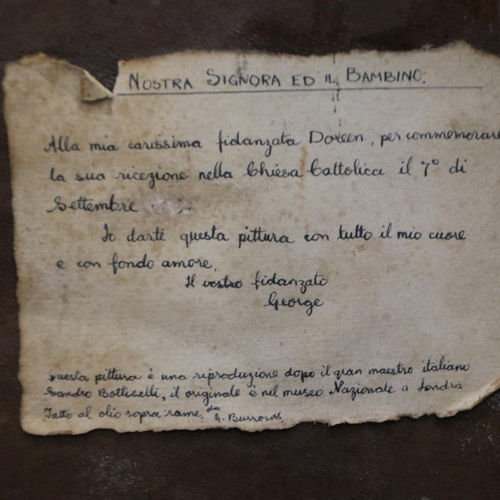 NOSTRA SIGNORA ED IL BAMBINO.
Alla mia carissima fidanzata Doreen, per commemorare
la sua ricezione nella Chiesa Cattolica il 7° di
Settembre
Io darte questa pittura con tutto il mio cuore
e con fondo amore.
Il vostro fidanzato
George
questa pittura è una riproduzione dopo il gran maestro italiano
Sandro Botticelli, il originale è nel museo Nazionale a Londra
Fatto al olio sopra rame. da G. Burrows